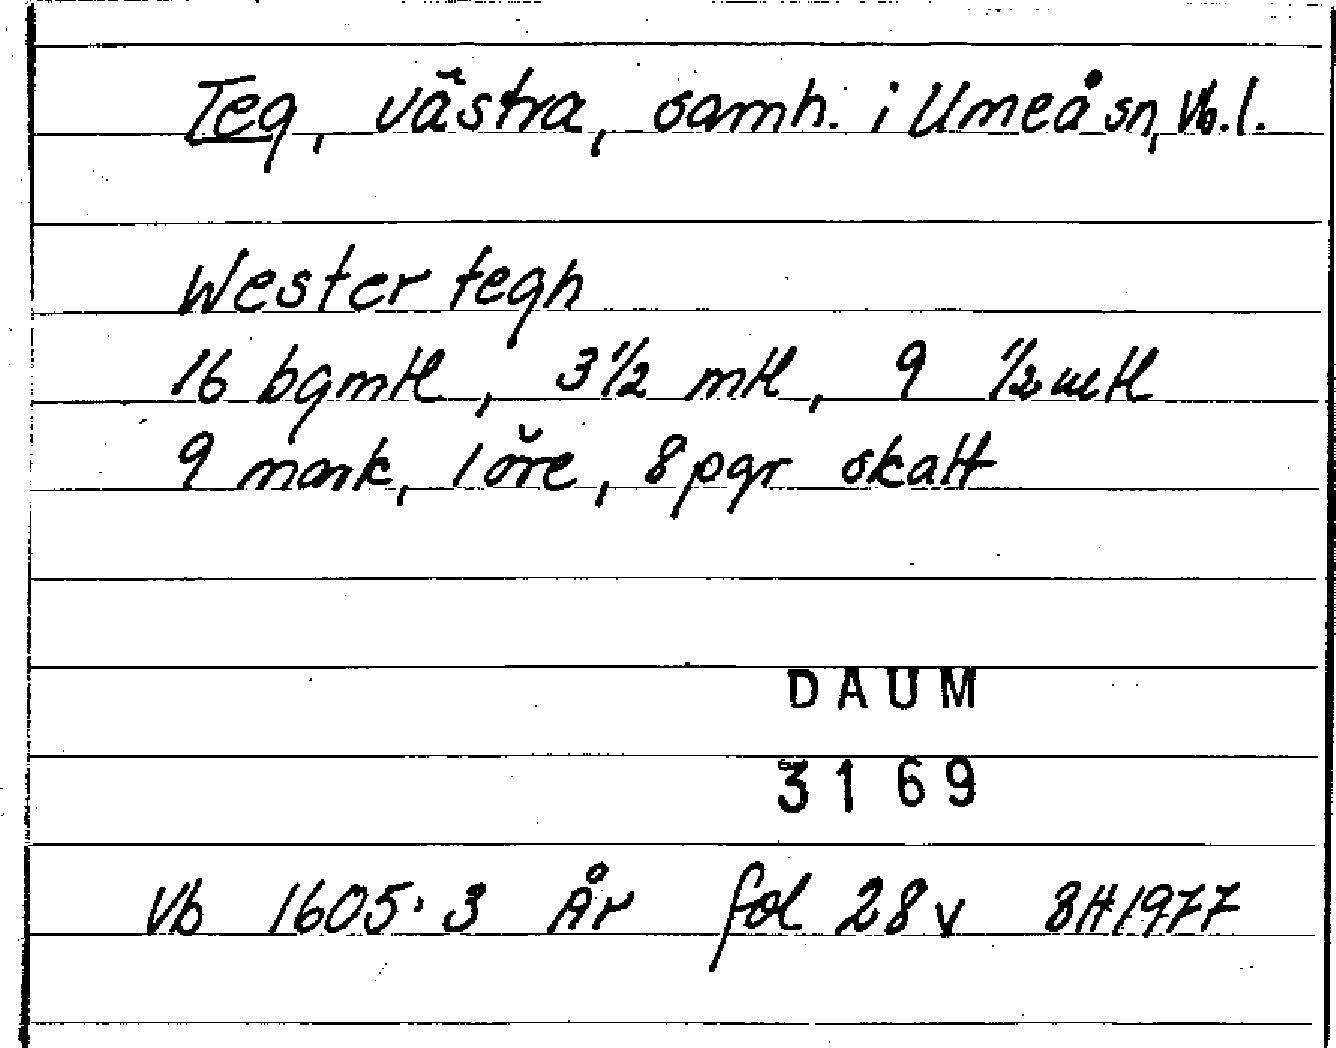 Teg, västra, samh. i Umeå sn, Vb.l.
Wester tegh
16 bgmtl, 3½ mtl, 9 ½ mtl
9 mark, 1 öre, 8 pgr skatt
DAUM
3169
Vb 1605:3 År fol 28 v BH 1977